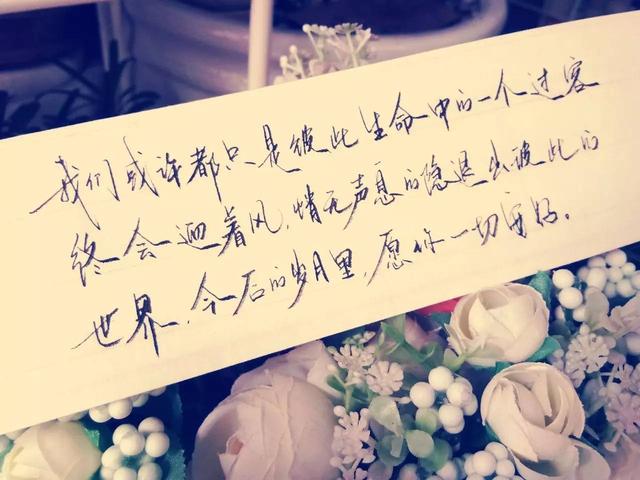 我们或许都只是彼此生命中的一个过客
终会迎着风,悄无声息的隐退出彼此的
世界,今后的岁月里,愿你一切安好。